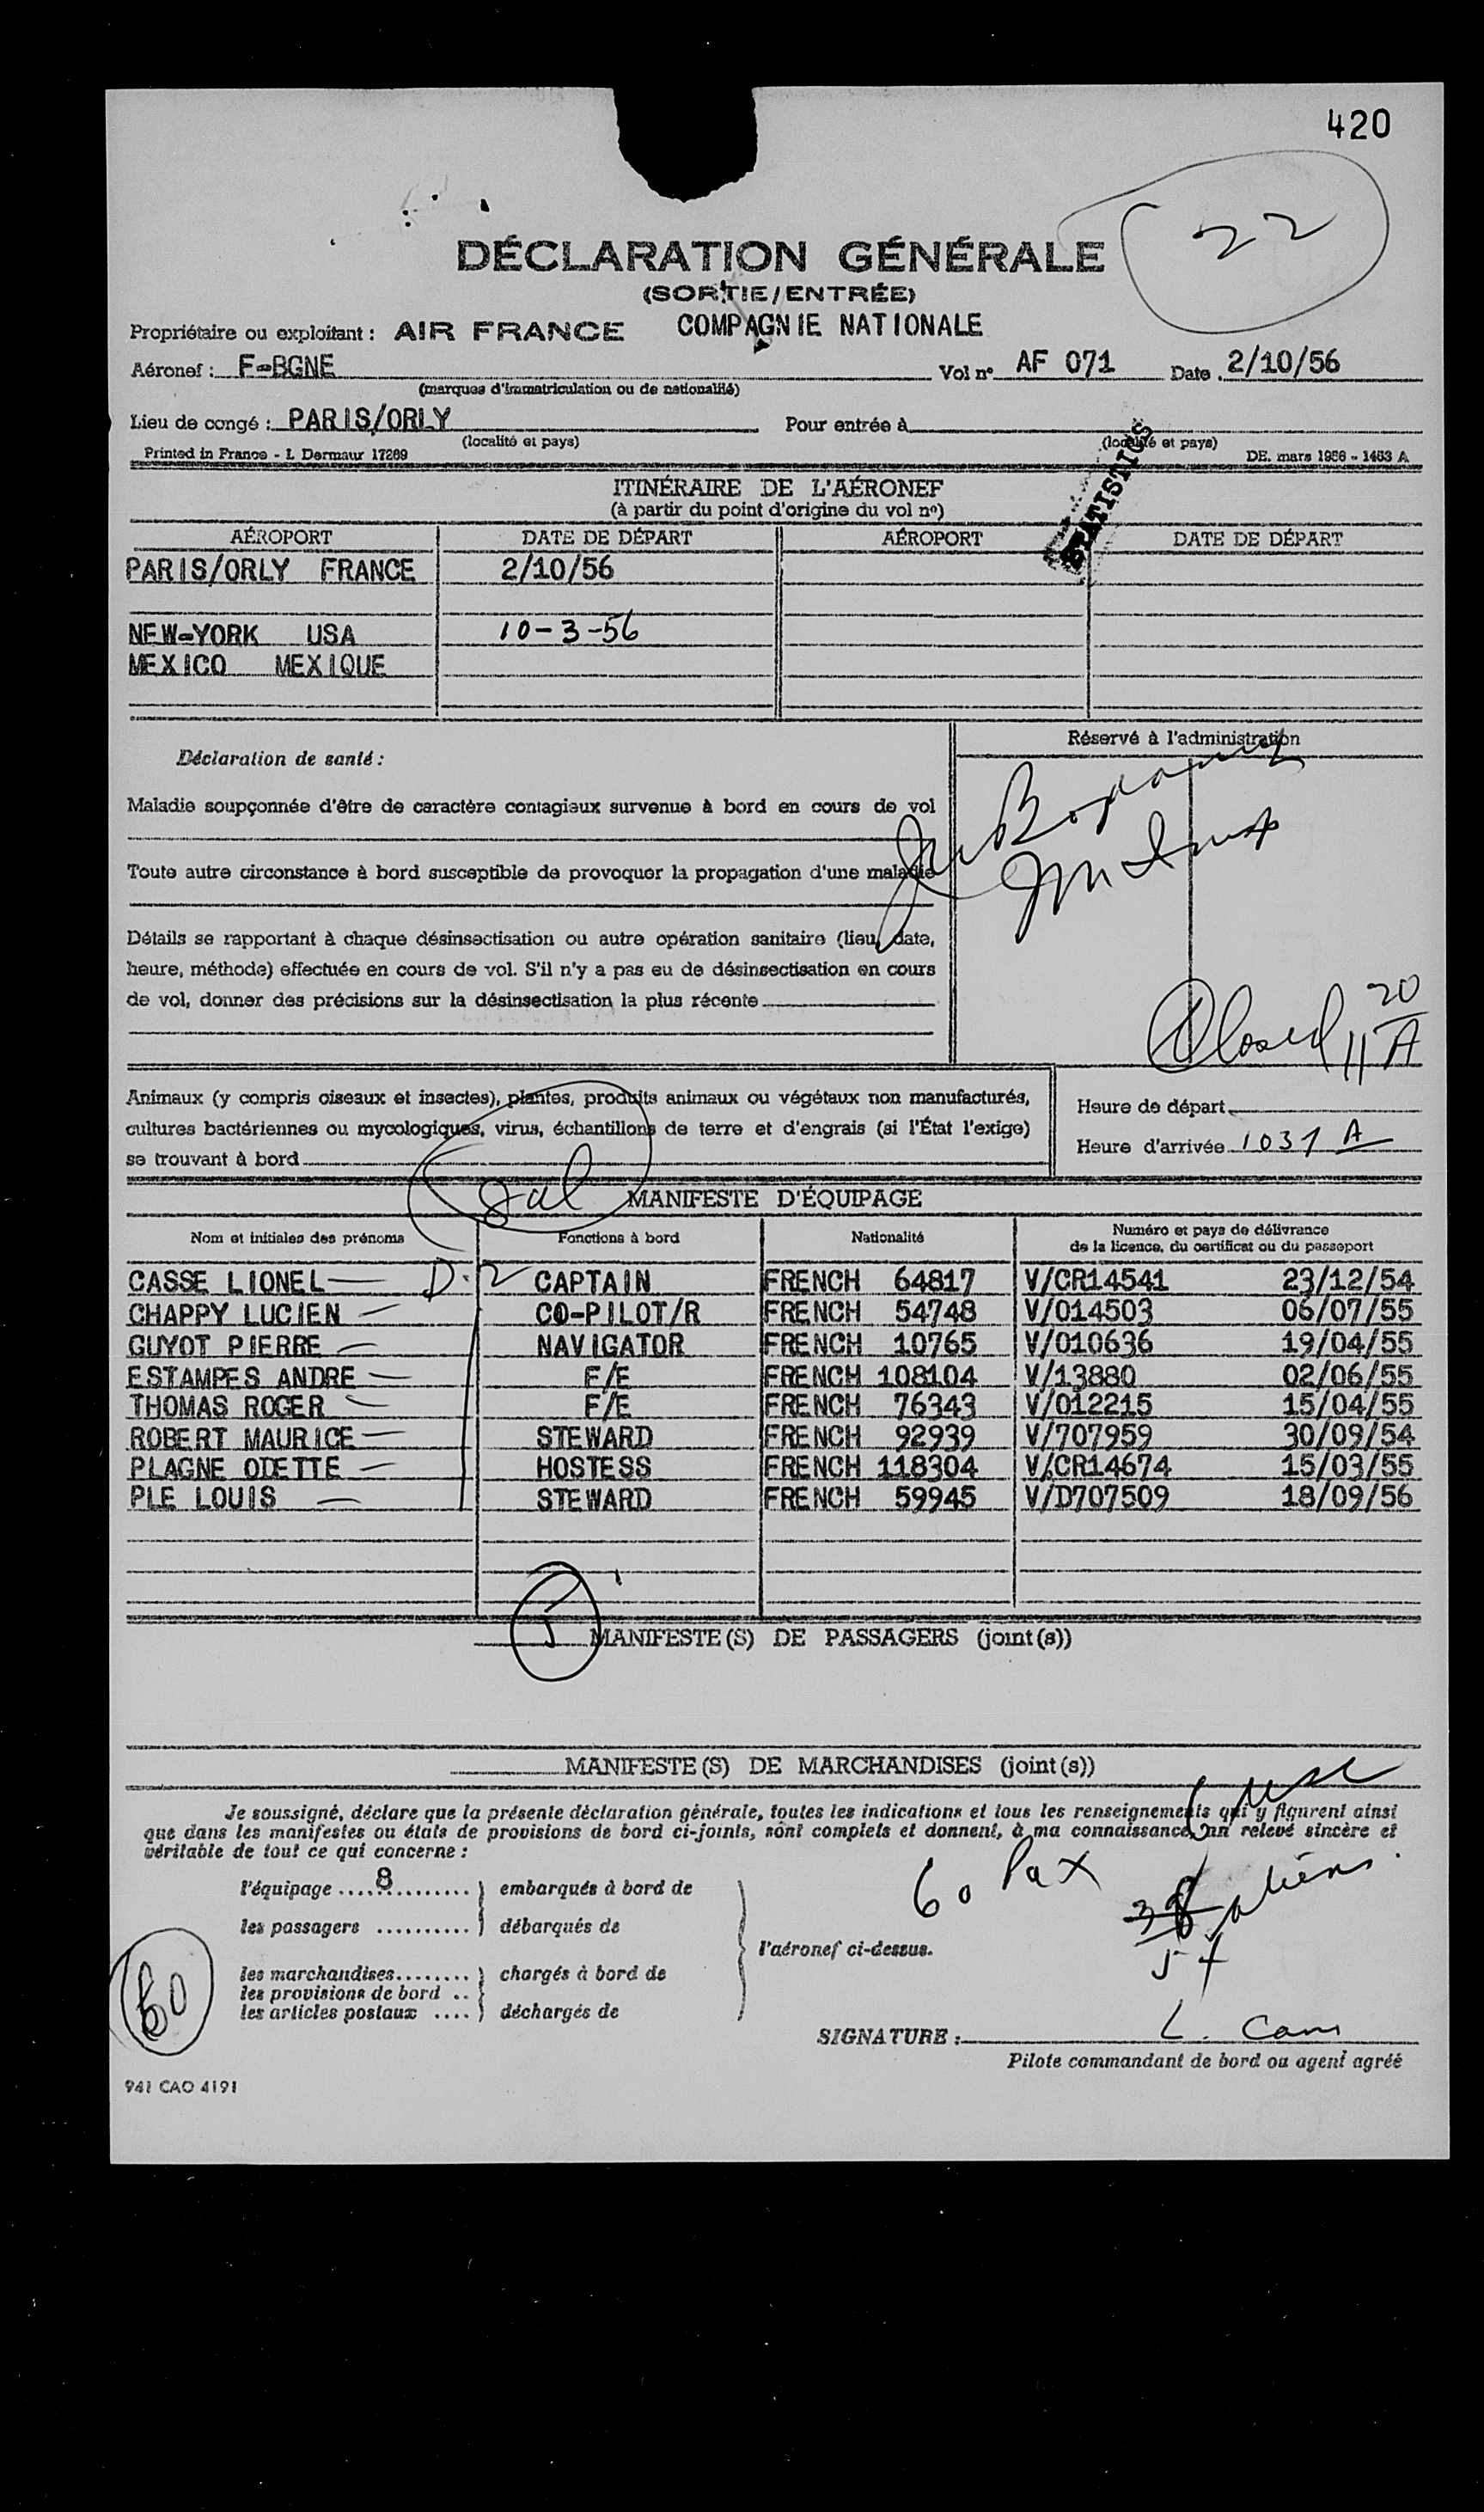 420
22
DÉCLARATION GÉNÉRALE
(SORTIE/ENTRÉE)
Propriétaire ou exploitant : AIR FRANCE COMPAGNIE NATIONALE
Aéronef : F-BGNE Vol nº AF 071 Date 2/10/56
(marques d'immatriculation ou de nationalité)
Lieu de congé : PARIS/ORLY Pour entrée à
(localité et pays) (localité et pays)
Printed in France - I. Dermaur 17269 DE. mars 1956 - 1463 A
STATISTICS
ITINÉRAIRE DE L'AÉRONEF
(à partir du point d'origine du vol nº)
AÉROPORT DATE DE DÉPART AÉROPORT DATE DE DÉPART
PARIS/ORLY FRANCE 2/10/56
NEW-YORK USA 10-3-56
MEXICO MEXIQUE
Réservé à l'administration
Déclaration de santé :
Maladie soupçonnée d'être de caractère contagieux survenue à bord en cours de vol
Toute autre circonstance à bord susceptible de provoquer la propagation d'une maladie
Détails se rapportant à chaque désinsectisation ou autre opération sanitaire (lieu, date,
heure, méthode) effectuée en cours de vol. S'il n'y a pas eu de désinsectisation en cours
de vol, donner des précisions sur la désinsectisation la plus récente
Closed 11 20 A
Animaux (y compris oiseaux et insectes), plantes, produits animaux ou végétaux non manufacturés,
cultures bactériennes ou mycologiques, virus, échantillons de terre et d'engrais (si l'État l'exige)
se trouvant à bord
Heure de départ
Heure d'arrivée 1031 A
MANIFESTE D'ÉQUIPAGE
Nom et initiales des prénoms Fonctions à bord Nationalité Numéro et pays de délivrance
de la licence, du certificat ou du passeport
CASSE LIONEL D-2 CAPTAIN FRENCH 64817 V/CR14541 23/12/54
CHAPPY LUCIEN CO-PILOT/R FRENCH 54748 V/014503 06/07/55
GUYOT PIERRE NAVIGATOR FRENCH 10765 V/010636 19/04/55
ESTAMPES ANDRE F/E FRENCH 108104 V/13880 02/06/55
THOMAS ROGER F/E FRENCH 76343 V/012215 15/04/55
ROBERT MAURICE STEWARD FRENCH 92939 V/707959 30/09/54
PLAGNE ODETTE HOSTESS FRENCH 118304 V/CR14674 15/03/55
PLE LOUIS STEWARD FRENCH 59945 V/D707509 18/09/56
5 MANIFESTE(S) DE PASSAGERS (joint(s))
MANIFESTE(S) DE MARCHANDISES (joint(s))
Je soussigné, déclare que la présente déclaration générale, toutes les indications et tous les renseignements qui y figurent ainsi
que dans les manifestes ou états de provisions de bord ci-joints, sont complets et donnent, à ma connaissance, un relevé sincère et
véritable de tout ce qui concerne :
6 usc
60 Pax
aliens
54
l'équipage ....8.......... embarqués à bord de
les passagers .......... débarqués de
l'aéronef ci-dessus.
les marchandises........ chargés à bord de
les provisions de bord ..
les articles postaux .... déchargés de
60
SIGNATURE :
Pilote commandant de bord ou agent agréé
941 CAO 4191